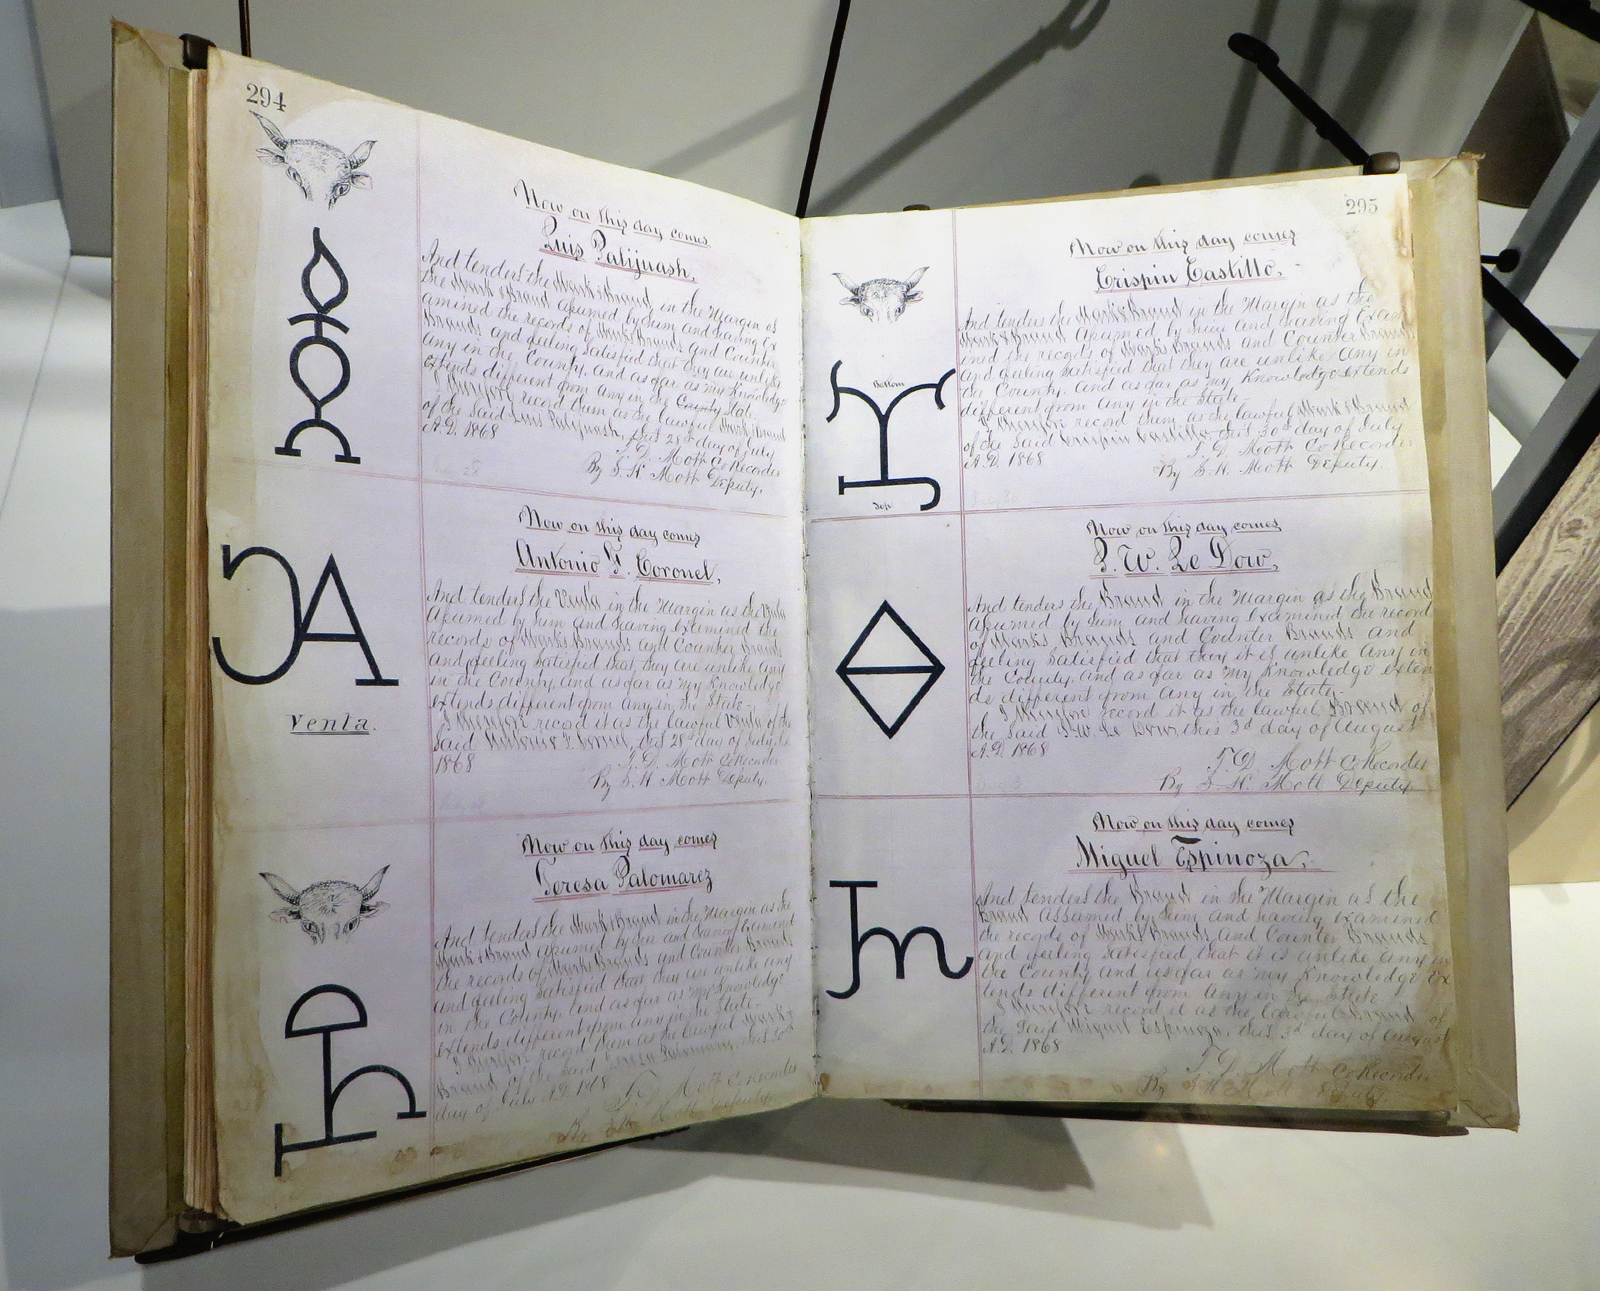 294
Now on this day comes
Luis Palijuash,
And tenders the Mark & Brand in the Margin as
the Mark & Brand assumed by him and having ex
amined the records of Marks Brands and Counter
Brands and feeling satisfied that they are unlike
any in the County, and as far as my Knowledge
extends different from any in the County State
I therefore record them as the lawful Mark & Brand
of the said Luis Palijuash, this 28th day of July
A.D. 1868
T. D. Mott Co Recorder
By S. H. Mott Deputy.
Now on this day comes
Antonio F. Coronel,
And tenders the Venta in the Margin as the Venta
assumed by him and having examined the
records of Marks Brands and Counter Brands
and feeling satisfied that they are unlike any
in the County, and as far as my Knowledge
extends different from any in the State
I therefore record it as the lawful Venta of the
said Antonio F. Coronel, this 28th day of July
1868
T. D. Mott Co Recorder
By S. H. Mott Deputy.
Venta.
Now on this day comes
Teresa Palomarez
And tenders the Mark & Brand in the Margin as the
Mark & Brand assumed by her and having examined
the records of Marks Brands and Counter Brands
and feeling satisfied that they are unlike any
in the County, and as far as my Knowledge
extends different from any in the State
I therefore record them as the lawful Mark &
Brand of the said Teresa Palomarez, this 30th
day of July A.D. 1868
T. D. Mott Co Recorder
By S. H. Mott Deputy
295
Now on this day comes
Crispin Castillo,
And tenders the Mark & Brand in the Margin as the
Mark & Brand assumed by him and having exam
ined the records of Marks Brands and Counter Brands
and feeling satisfied that they are unlike any in
the County, and as far as my Knowledge extends
different from any in the State
I therefore record them as the lawful Mark & Brand
of the said Crispin Castillo, this 30th day of July
A.D. 1868
T. D. Mott Co Recorder
By S. H. Mott Deputy.
Bottom
Top
Now on this day comes
S. W. Le Dow,
And tenders the Brand in the Margin as the Brand
assumed by him and having examined the record
of Marks Brands and Counter Brands and
feeling satisfied that they it is unlike any in
the County, and as far as my Knowledge exten
ds different from any in the State
I therefore record it as the lawful Brand of
the said S. W. Le Dow, this 3d day of August
A.D. 1868
T. D. Mott Co Recorder
By S. H. Mott Deputy
Now on this day comes
Miguel Espinoza,
And tenders the Brand in the Margin as the
Brand assumed by him and having examined
the records of Marks Brands and Counter Brands
and feeling satisfied that it is unlike any in
the County and as far as my Knowledge ex
tends different from any in the State
I therefore record it as the lawful Brand of
the said Miguel Espinoza, this 3d day of August
A.D. 1868
T. D. Mott Co Recorder
By S. H. Mott Deputy